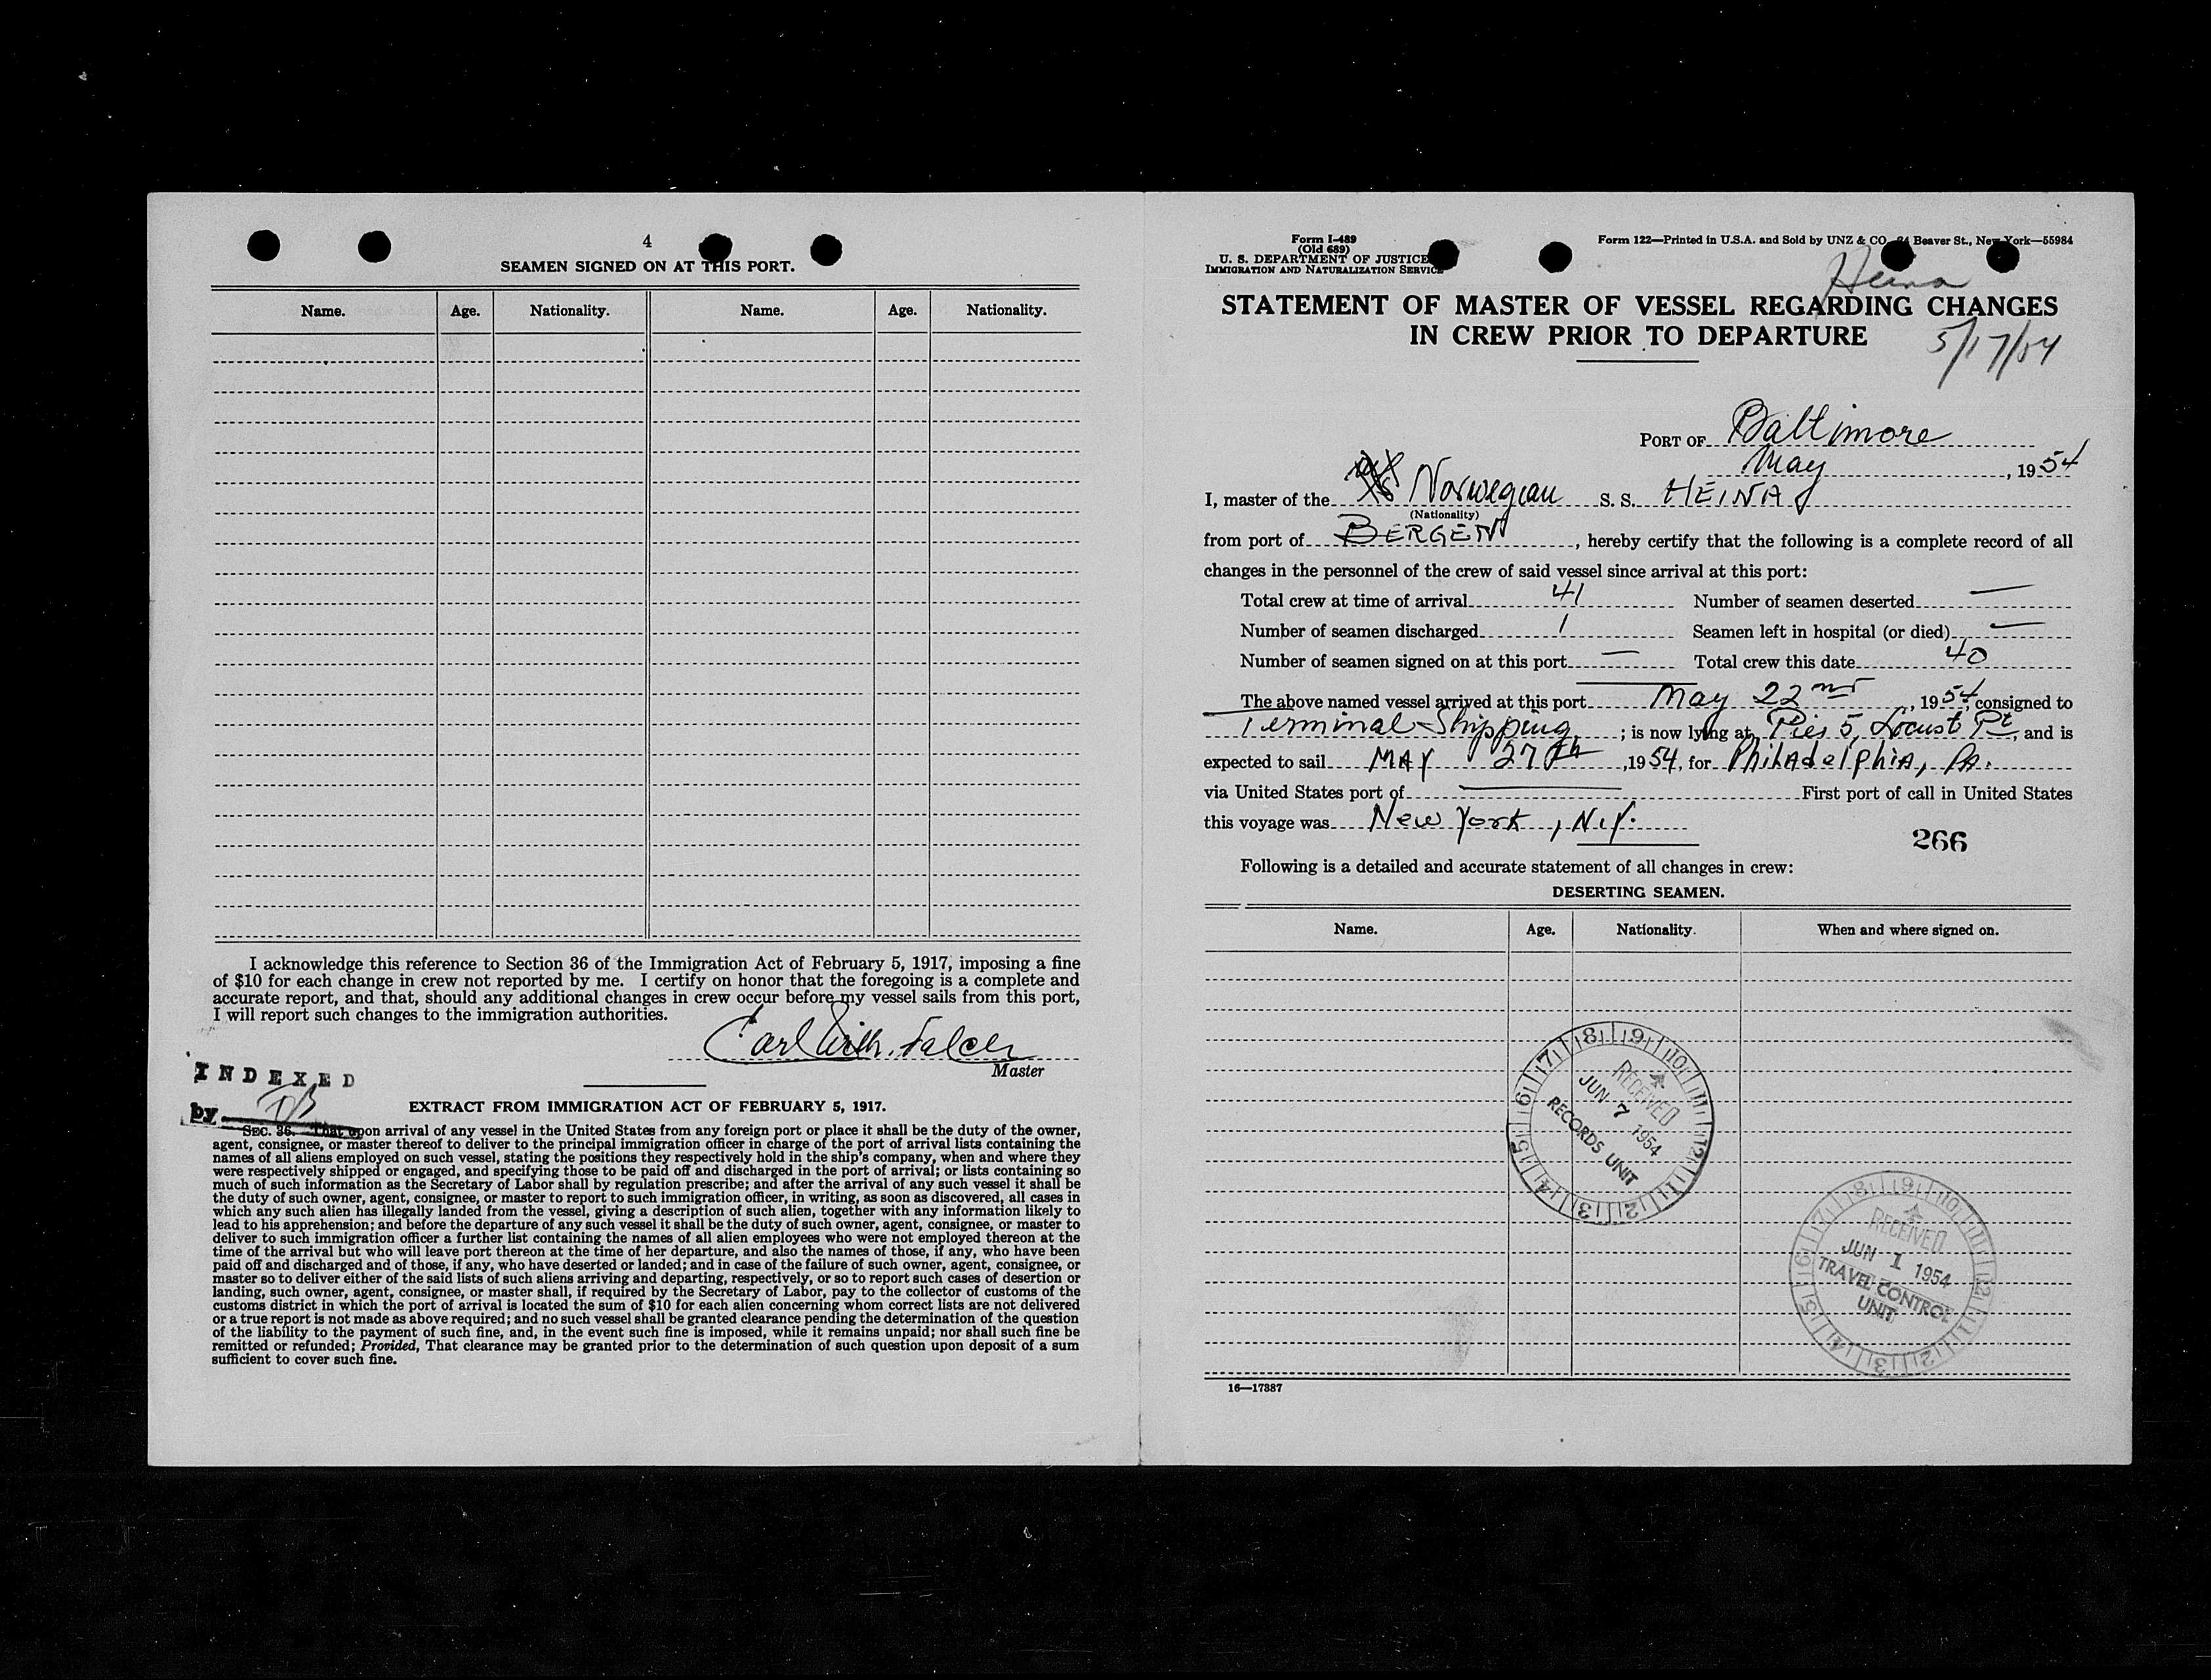 4
SEAMEN SIGNED ON AT THIS PORT.
Name. Age. Nationality. Name. Age. Nationality.
I acknowledge this reference to Section 36 of the Immigration Act of February 5, 1917, imposing a fine
of $10 for each change in crew not reported by me. I certify on honor that the foregoing is a complete and
accurate report, and that, should any additional changes in crew occur before my vessel sails from this port,
I will report such changes to the immigration authorities.
Carl
Master
INDEXED
by
EXTRACT FROM IMMIGRATION ACT OF FEBRUARY 5, 1917.
SEC. 36. That upon arrival of any vessel in the United States from any foreign port or place it shall be the duty of the owner,
agent, consignee, or master thereof to deliver to the principal immigration officer in charge of the port of arrival lists containing the
names of all aliens employed on such vessel, stating the positions they respectively hold in the ship's company, when and where they
were respectively shipped or engaged, and specifying those to be paid off and discharged in the port of arrival; or lists containing so
much of such information as the Secretary of Labor shall by regulation prescribe; and after the arrival of any such vessel it shall be
the duty of such owner, agent, consignee, or master to report to such immigration officer, in writing, as soon as discovered, all cases in
which any such alien has illegally landed from the vessel, giving a description of such alien, together with any information likely to
lead to his apprehension; and before the departure of any such vessel it shall be the duty of such owner, agent, consignee, or master to
deliver to such immigration officer a further list containing the names of all alien employees who were not employed thereon at the
time of the arrival but who will leave port thereon at the time of her departure, and also the names of those, if any, who have been
paid off and discharged and of those, if any, who have deserted or landed; and in case of the failure of such owner, agent, consignee, or
master so to deliver either of the said lists of such aliens arriving and departing, respectively, or so to report such cases of desertion or
landing, such owner, agent, consignee, or master shall, if required by the Secretary of Labor, pay to the collector of customs of the
customs district in which the port of arrival is located the sum of $10 for each alien concerning whom correct lists are not delivered
or a true report is not made as above required; and no such vessel shall be granted clearance pending the determination of the question
of the liability to the payment of such fine, and, in the event such fine is imposed, while it remains unpaid; nor shall such fine be
remitted or refunded; Provided, That clearance may be granted prior to the determination of such question upon deposit of a sum
sufficient to cover such fine.
Form I-489
(Old 689)
U. S. DEPARTMENT OF JUSTICE
IMMIGRATION AND NATURALIZATION SERVICE
Form 122—Printed in U.S.A. and Sold by UNZ & CO., 24 Beaver St., New York—55984
Heina
STATEMENT OF MASTER OF VESSEL REGARDING CHANGES
IN CREW PRIOR TO DEPARTURE
5/17/54
PORT OF Baltimore
May, 1954
I, master of the Norwegian S. S. HEINA
(Nationality)
from port of BERGEN, hereby certify that the following is a complete record of all
changes in the personnel of the crew of said vessel since arrival at this port:
Total crew at time of arrival 41 Number of seamen deserted —
Number of seamen discharged 1 Seamen left in hospital (or died) —
Number of seamen signed on at this port — Total crew this date 40
The above named vessel arrived at this port May 22nd, 1954, consigned to
Terminal Shipping; is now lying at Pier 5, Locust Pt, and is
expected to sail MAY 27th, 1954, for Philadelphia, PA.
via United States port of — First port of call in United States
this voyage was New York, N.Y.
266
Following is a detailed and accurate statement of all changes in crew:
DESERTING SEAMEN.
Name. Age. Nationality. When and where signed on.
RECEIVED
JUN 7 1954
RECORDS UNIT
RECEIVED
JUN 1 1954
TRAVEL CONTROL
UNIT
16—17887